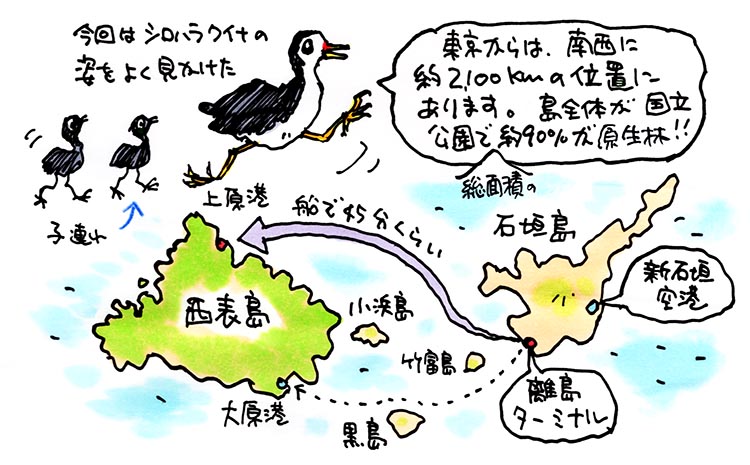 今回はシロハラクイナの
姿をよく見かけた
東京からは、南西に
約2,100kmの位置に
あります。島全体が国立
公園で約90%が原生林!!
総面積の
子連れ
上原港
船で45分くらい
石垣島
新石垣
空港
西表島
小浜島
竹富島
離島
ターミナル
大原港
黒島